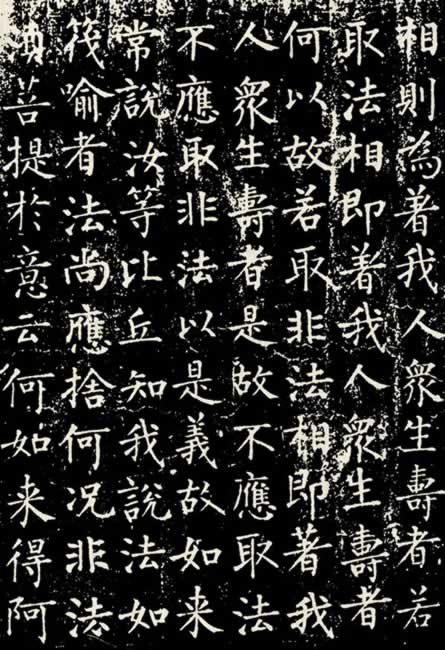 相則為著我人衆生壽者若
取法相即著我人衆生壽者
何以故若取非法相即著我
人衆生壽者是故不應取法
不應取非法以是義故如来
常說汝等比丘知我說法如
筏喻者法尚應捨何况非法
菩提於意云何如来得阿